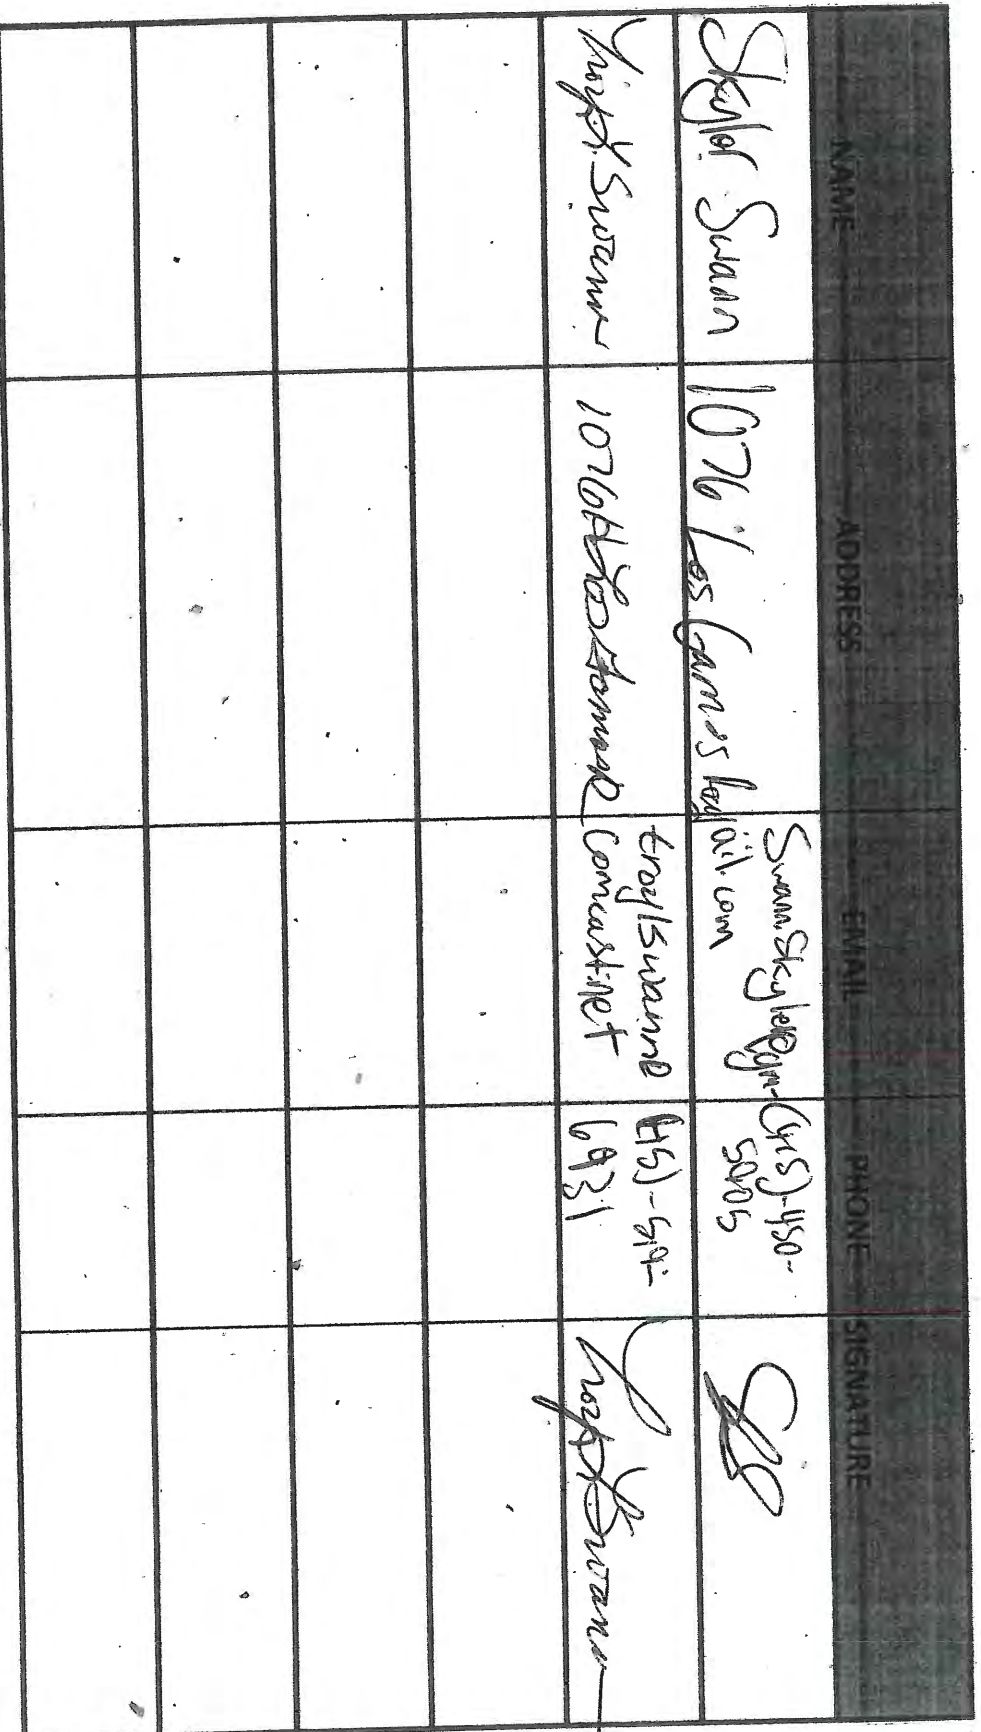 NAME ADDRESS EMAIL PHONE SIGNATURE
Skylor Swann
1076 Los Gamos
SwannSkyler@gm-
ail.com
(415)-450-
Troy L. Swann
1076
Los Gamos
troylswann@
comcast.net
415)-519-
6931
Troy L Swann